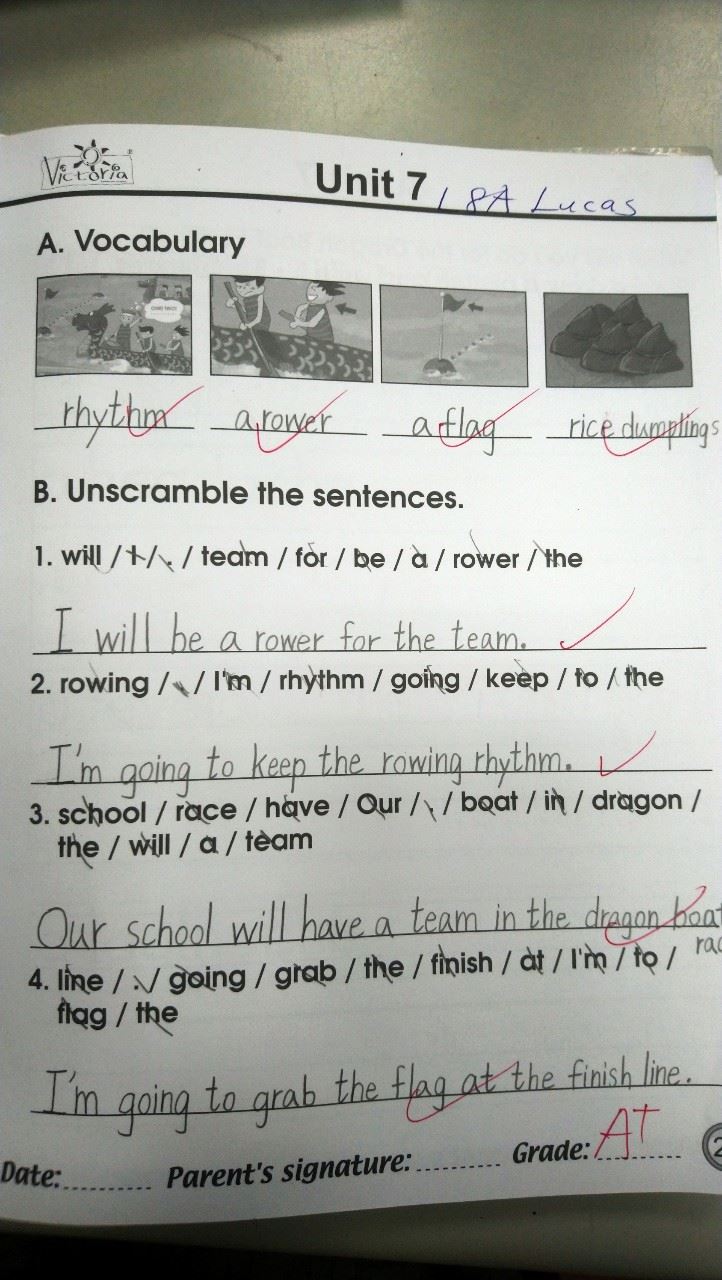 Victoria
Unit 7 / 8A Lucas
A. Vocabulary
rhythm a rower a flag rice dumplings
B. Unscramble the sentences.
1. will / I / . / team / for / be / a / rower / the
I will be a rower for the team.
2. rowing / . / I'm / rhythm / going / keep / to / the
I'm going to keep the rowing rhythm.
3. school / race / have / Our / . / boat / in / dragon /
the / will / a / team
Our school will have a team in the dragon boat
4. line / . / going / grab / the / finish / at / I'm / to /
flag / the
I'm going to grab the flag at the finish line.
Date: Parent's signature: Grade: A+